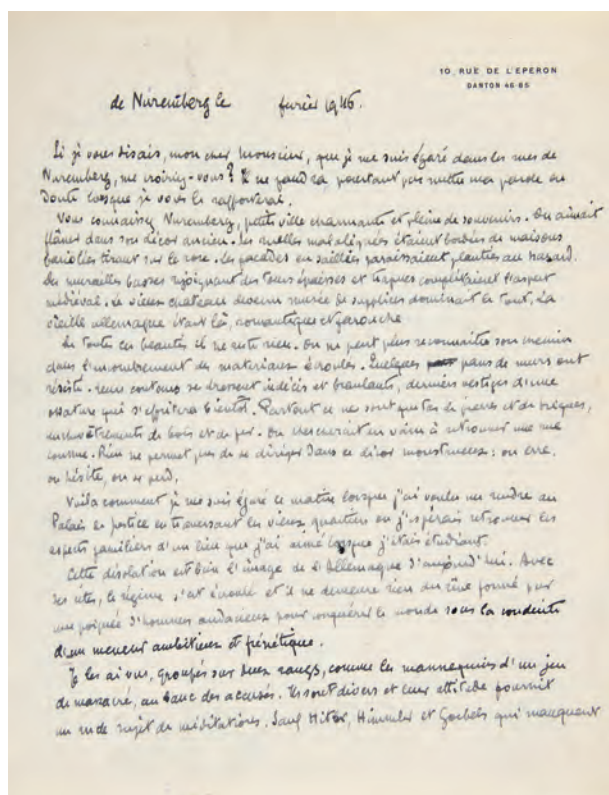 10 RUE DE L'EPERON
DANTON 46-85
de Nuremberg le février 1946.
Si je vous disais, mon cher Monsieur, que je me suis égaré dans les rues de
Nuremberg, me croiriez-vous? Il ne faudra pourtant pas mettre ma parole en
doute lorsque je vous le rapporterai.
Vous connaissez Nuremberg, petite ville charmante et pleine de souvenirs. On aimait
flâner dans son décor ancien. Les ruelles mal alignées étaient bordées de maisons
bariolées tirant sur le rose. Les façades en saillées paraissaient plantées au hasard.
Des murailles basses rejoignant des tours épaisses et trapues complétaient l'aspect
médiéval. Le vieux chateau devenu musée de supplices dominait le tout. La
vieille allemagne était là, romantique et farouche
De toutes ces beautés il ne reste rien. On ne peut plus reconnaître son chemin
dans l'amoncellement des materiaux écroulés. Quelques pans de murs ont
résisté. Leurs contours se dressent indécis et branlants, derniers vestiges d'une
ossature qui s'effritera bientôt. Partout ce ne sont que tas de pierres et de briques,
enchevêtrements de bois et de fer. On chercherait en vain à retrouver une rue
connue. Rien ne permet pas de se diriger dans ce décor monstrueux: on erre,
on hésite, on se perd.
Voilà comment je me suis égaré ce matin lorsque j'ai voulu me rendre au
Palais de justice en traversant les vieux quartiers où j'espérais retrouver les
aspects familiers d'un lieu que j'ai aimé lorsque j'étais étudiant.
Cette désolation est bien l'image de l'Allemagne d'aujourd'hui. Avec
ses rites, le régime s'est écroulé et il ne demeure rien du rêve formé par
une poignée d'hommes audacieux pour conquérir le monde sous la conduite
d'un meneur ambitieux et frénétique.
Je les ai vus, groupés sur deux rangs, comme les mannequins d'un jeu
de massacre, au banc des accusés. Ils sont divers et leur attitude fournit
un rude sujet de méditations. Sauf Hitler, Himmler et Goebels qui manquent